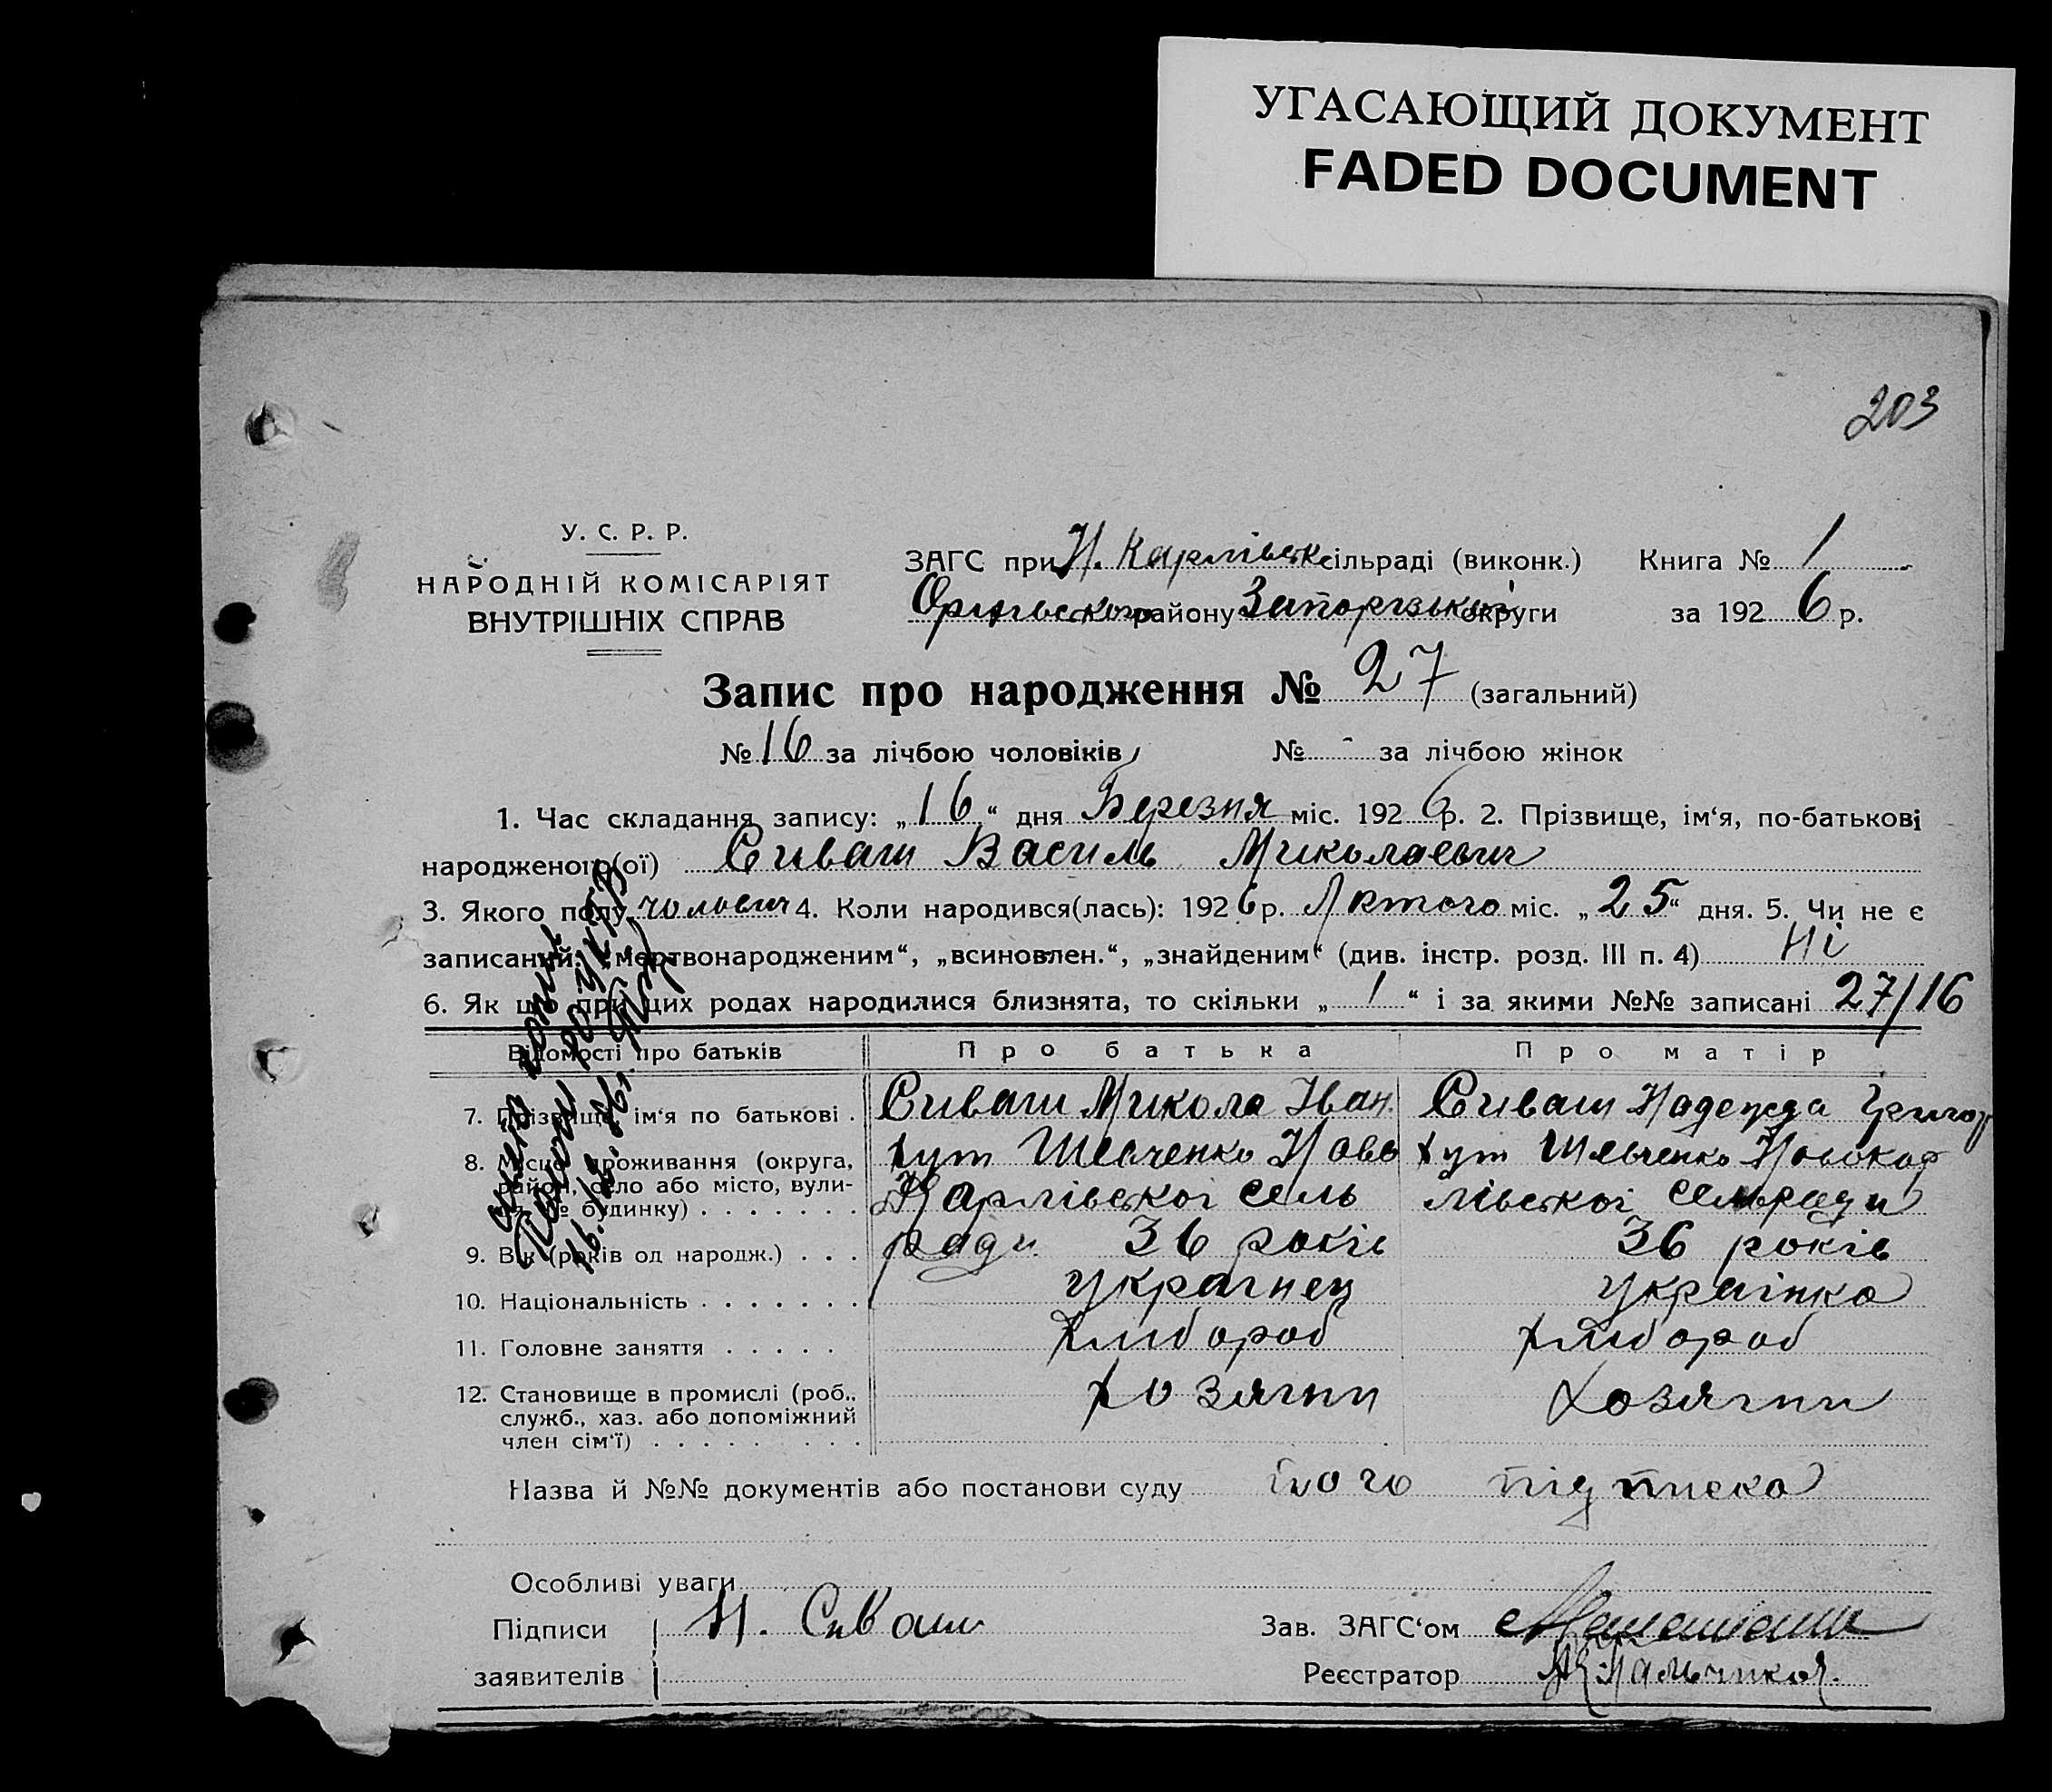 УГАСАЮЩИЙ ДОКУМЕНТ
FADED DOCUMENT
203
У. С. Р. Р.
НАРОДНІЙ КОМІСАРІЯТ
ВНУТРІШНІХ СПРАВ
ЗАГС при Н. Карлівськ сільраді (виконк.) Книга № 1
району Запорізької округи за 1926 р.
Запис про народження № 27 (загальний)
№ 16 за лічбою чоловіків, № - за лічбою жінок
1. Час складання запису: „16“ дня Березня міс. 1926 р. 2. Прізвище, ім‘я, по-батькові
народженого(ої) Сиваш Василь Миколаевич
3. Якого полу чолович 4. Коли народився(лась): 1926 р. Лютого міс. „25“ дня. 5. Чи не є
записаний: „мертвонародженим“, „всиновлен.“, „знайденим“ (див. інстр. розд. III п. 4) Ні
6. Як що при цих родах народилися близнята, то скільки „1“ і за якими №№ записані 27/16
Відомості про батьків Про батька Про матір
7. Прізвище, ім‘я по батькові . Сиваш Микола Іван. Сиваш Надежда Григор
8. Місце проживання (округа, хут Шевченко Ново хут Шевченко Новокар
район, село або місто, вули-
ця, № будинку) . . . . . . . Карлівської сель лівської сельради
9. Вік (років од народж.) . . . ради 36 років 36 років
10. Національність . . . . . . . украінец украінка
11. Головне заняття . . . . . хлибороб хлибороб
12. Становище в промислі (роб., хозяин хозяин
служб., хаз. або допоміжний
член сім‘ї) . . . . . . . .
Назва й №№ документів або постанови суду його підписка
Особливі уваги
Підписи Н. Сиваш Зав. ЗАГС‘ом
заявителів Реєстратор